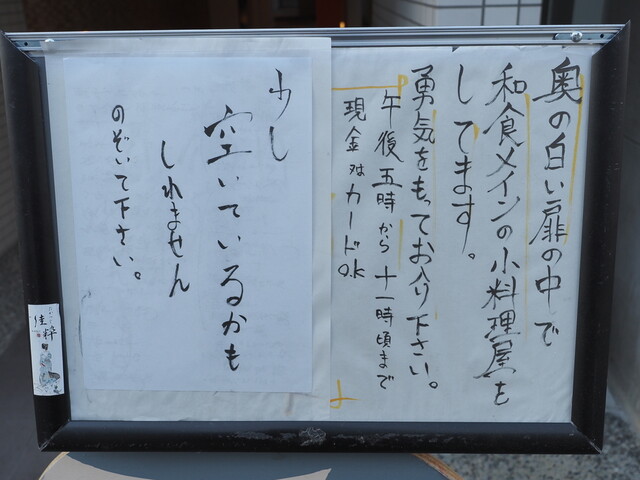 奥の白い扉の中で
和食メインの小料理屋を
してます。
勇気をもってお入り下さい。
午後五時から十一時頃まで
現金又はカードOK
少し
空いているかも
しれません
のぞいて下さい。
佳粋